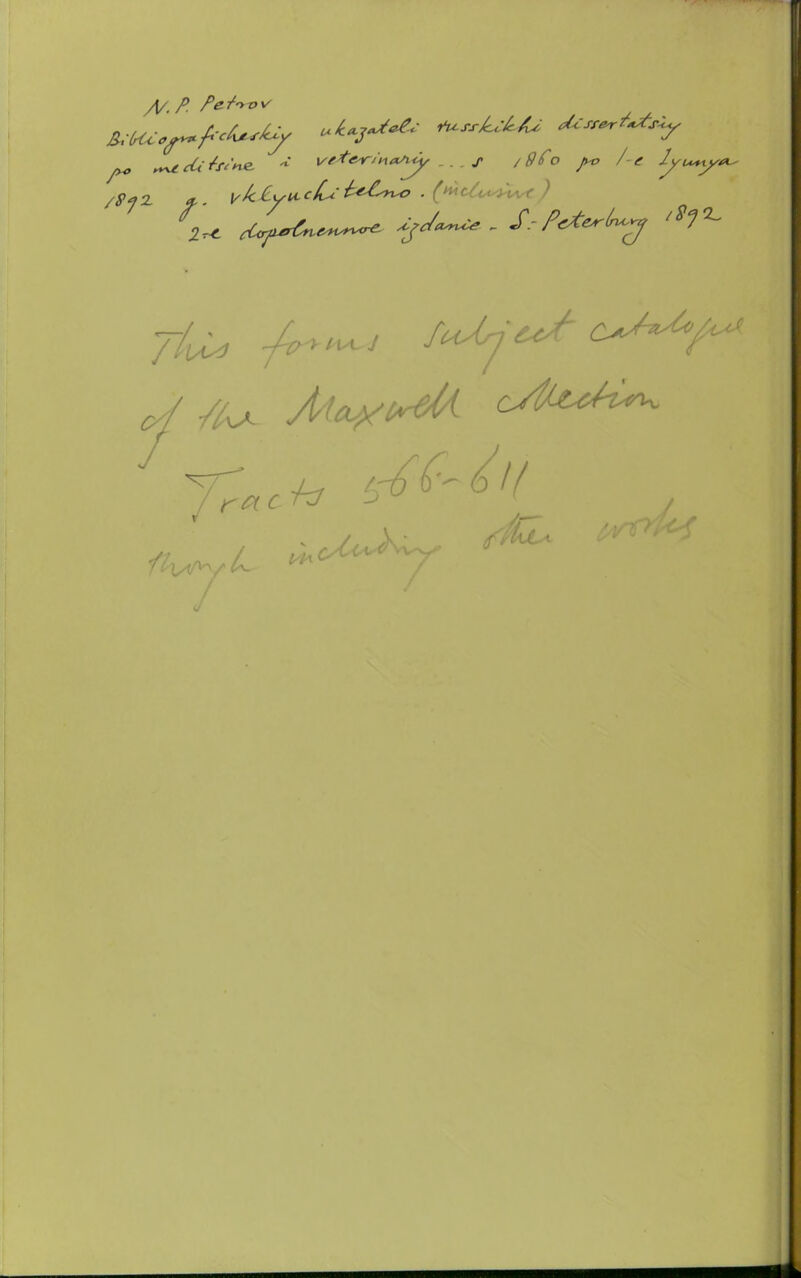 N. P. Petrov
Bibliograficheskiy ukazateli russkikh dissertatsiy
po meditsine i veterinariy ... s 1860 po 1-e Iyunya
1892 g. vklyuchitelno. (inclusive)
2-e dopolnennoe izdanie - S.-Peterburg 1892
This forms subject catalogue
of the Maxwell collection
Tracts 566-611